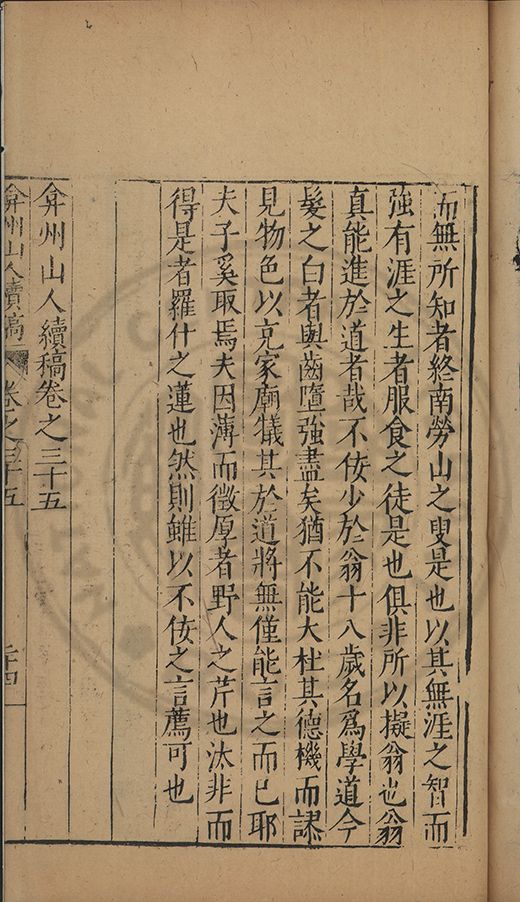 而無所知者終南勞山之叟是也以其無涯之智而
強有涯之生者服食之徒是也俱非所以擬翁也翁
真能進於道者哉不佞少於翁十八歲名爲學道今
髮之白者與齒墮強盡矣猶不能大杜其德機而謬
見物色以充家廟犧其於道將無僅能言之而已耶
夫子奚取焉夫因薄而徵厚者野人之芹也汰非而
得是者羅什之蓮也然則雖以不佞之言薦可也
弇州山人續稿卷之三十五
弇州山人續稿 卷之三十五 二十四